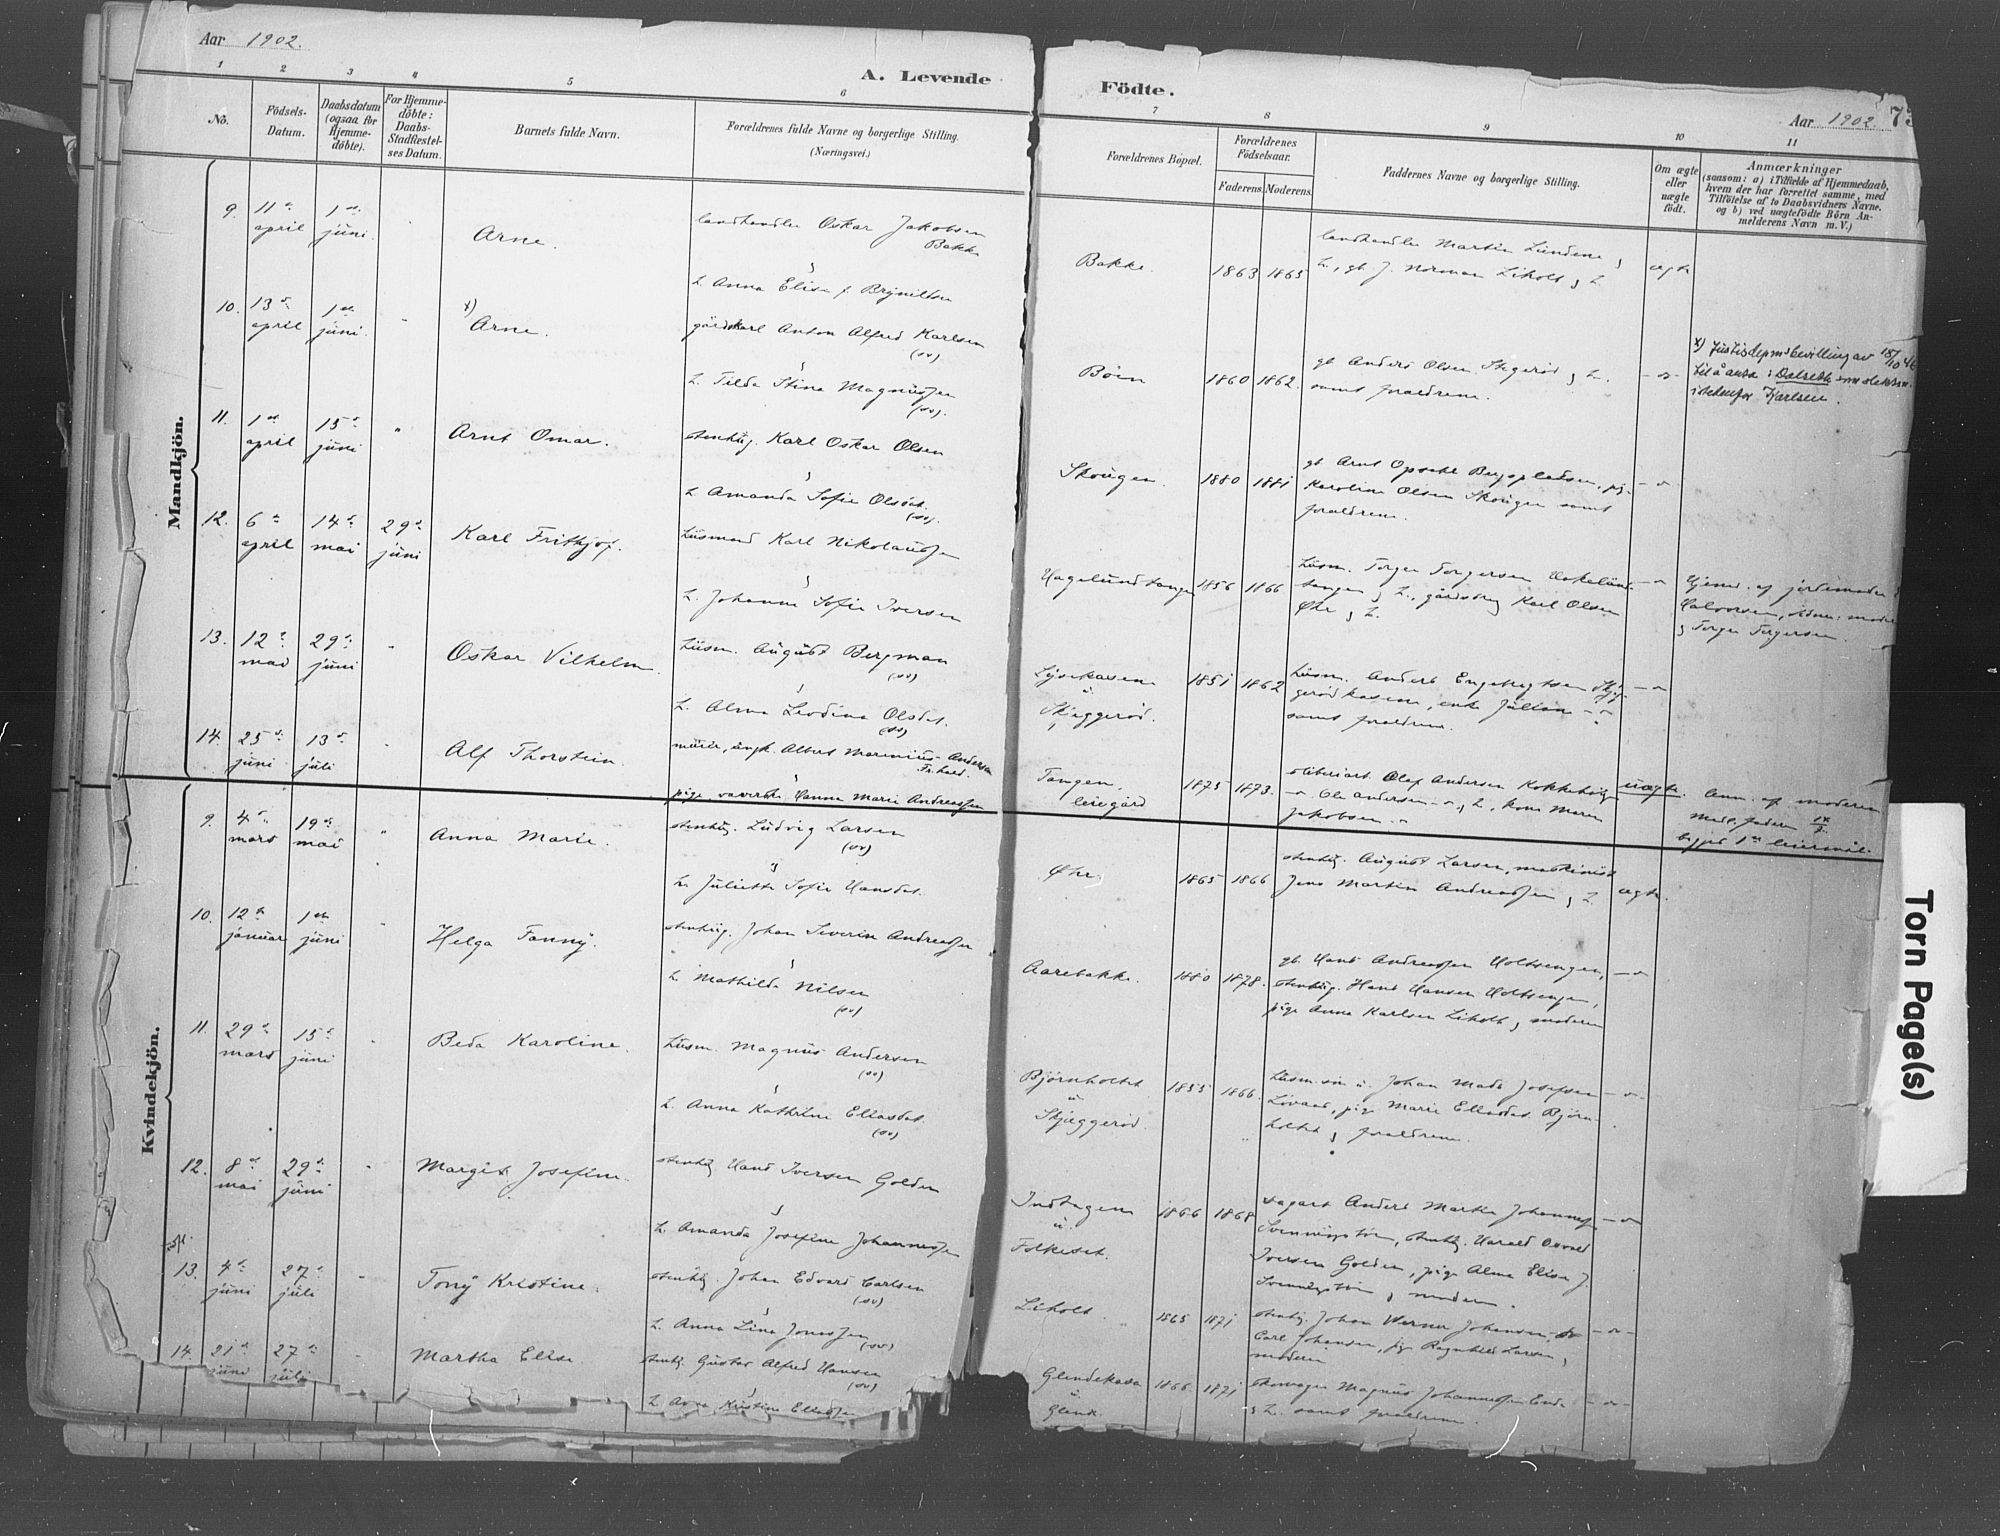 Aar 1902.
A. Levende
Födte.
Aar 1902.
1 2 3 4 5 6 7 8 9 10 11
No.
Födsels-
Datum.
Daabsdatum
(ogsaa for
Hjemme-
döbte).
For Hjemme-
döbte:
Daabs-
Stadfæstel-
ses Datum.
Barnets fulde Navn.
Forældrenes fulde Navne og borgerlige Stilling.
(Næringsvei.)
Forældrenes Bopæl.
Forældrenes
Födselsaar.
Faderens. Moderens.
Faddernes Navne og borgerlige Stilling.
Om ægte
eller
uægte
født.
Anmærkninger
(saasom: a) i Tilfælde af Hjemmedaab,
hvem der har forrettet samme, med
Tilföielse af to Daabsvidners Navne.
og b) ved uægtefödte Börn An-
melderens Navn m. V.)
Mandkjön.
9. 11 april 1 juni Arne.
landhandler Oskar Jakobsen
Bakke
&
h. Anna Elise f. Brynildsen
Bakke. 1863 1865
landhandler Martin Lundene &
h., gb. J. Norman Liholt & h.
ægte
10. 13 april 1 juni x) Arne.
gårdskarl Anton Alfred Karlsen
(sv)
&
h. Tilda Stina Magnussen
(sv).
Börn 1860 1862.
gb. Anders Olsen Stegeröd & h.
samt forældrene.
x) Justisdepms bevilling av 18/10 46
til å anta: Dalseth som slektsn.
istedenfor Karlsen.
11. 1 april 15 juni " Arnt Omar.
stenhug. Karl Oskar Olsen
&
h. Amanda Sofie Olsdat.
(sv).
Skougen. 1880 1881
gb. Arnt Opsahl Bergspladsen, pige
Karoline Olsen Skougen samt
forældrene.
12. 6 april 14 mai 29 juni Karl Frithjof.
Husmand Karl Nikolaussen
&
h. Johanne Sofie Iversen
Hagelundtangen 1856 1866
Husm. Torger Torgersen
tangen & h., gårdsbrug. Karl Olsen
Øhr & h.
Hjemd. af jordemoder
Halvorsen, vidner: moder
& Torger Torgersen.
13. 12 mai 29 juni Oskar Vilhelm.
Husm. August Bergman
(sv)
&
h. Alma Leodina Olsdat.
(sv)
Lysekasene
u.
Skjeggeröd. 1851 1862
Husm. Anders Engebregtsen Skjeg-
geröd kasene, enke Julian
samt forældrene.
14. 25 juni 13 juli Alf Thorstein.
murer, ungk. Albert Marinius Andersen
Fr.hald.
&
pige, væverske Hanna Marie Andreassen
Tangen
leiegård 1875 1873.
sliberiarb. Olaf Andersen
Ole Andersen & h., kone Maren
Jakobsen.
uægte.
Anm. af moderen
Medd. faderen
begges 1ste leiermål.
Kvindekjön.
9. 4 mars 19 mai " Anna Marie.
stenhug. Ludvig Larsen
(sv)
&
h. Juliette Sofie Hansdat.
Øhr. 1865 1866
stenhug. August Larsen, maskinist
Jens Martin Andreassen & h.
ægte.
10. 12 januar 1 juni Helga Fanny.
stenhug. Johan Severin Andreassen
&
h. Mathilde Nilsen
(sv)
Aarebakke. 1880 1878.
gb. Hans Andreassen Holtsengen,
stenhug. Hans Hansen Holtsengen,
pige Anna Karlsen Liholt & moderen
11. 29 mars 15 juni Beda Karoline.
Husm. Magnus Andersen
(sv)
&
h. Anna Kathrine Eliasdat.
(sv)
Björnholtet
u
Skjeggeröd. 1855 1866.
Husm. sön u. Johan Mads Josefsen
pige Marie Eliasdat. Björn-
holtet & forældrene.
12. 8 mai 29 juni Margit Josefine.
stenhug Hans Iversen Golden
&
h. Amanda Josefine Johannessen
Indtagene
u.
Folkeset. 1866 1868
sagarb Anders Martin Johannessen
stenhug. Harald Osvald
Iversen Golden, pige Alma Elise J.
& moderen.
13. 4 juni 27 juli Tony Kristine.
stenhug Johan Edvard Carlsen
(sv)
h. Anna Lina Jonassen
(sv)
Liholt 1865 1871
stenhug. Johan Werner Johansen
Carl Johansen, pige Ragnhild Larsen &
moderen
14. 21 juni 27 juli Martha Elise
stenhug Gustav Alfred Hansen
(sv)
&
h. Anna Kristine Eliassen
Glendekasa
u
Glende. 1866. 1871
Magnus Johannessen Ende
& h. samt forældrene.
Torn Page(s)